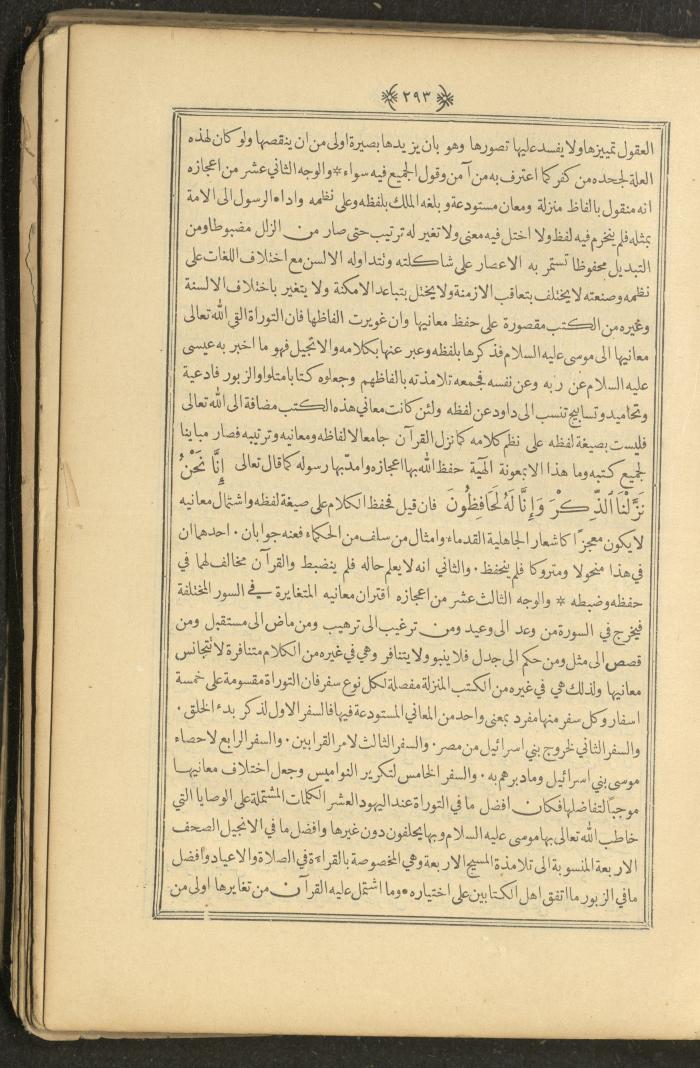 ٢٩٣
العقول تمييزها ولا يفسد عليها تصورها وهو بان يزيدها بصيرة اولى من ان ينقصها ولو كان لهذه
العلة لجحده من كفر كما اعترف به من آمن وقول الجميع فيه سواء * والوجه الثاني عشر من اعجازه
انه منقول بالفاظ منزلة ومعان مستودعة وبلغه الملك بلفظه وعلى نظمه واداه الرسول الى الامة
بمثله فلم ينخرم فيه لفظ ولا اختل فيه معنى ولا تغير له ترتيب حتى صار من الزلل مضبوطا ومن
التبديل محفوظا تستمر به الاعصار على شاكلته وتتداوله الالسن مع اختلاف اللغات على
نظمه وصنعته لا يختلف بتعاقب الازمنة ولا يختل بتباعد الامكنة ولا يتغير باختلاف الالسنة
وغيره من الكتب مقصورة على حفظ معانيها وان غويرت الفاظها فان التوراة القى الله تعالى
معانيها الى موسى عليه السلام فذكرها بلفظه وعبر عنها بكلامه والانجيل فهو ما اخبر به عيسى
عليه السلام عن ربه وعن نفسه فجمعه تلامذته بالفاظهم وجعلوه كتابا متلوا والزبور فادعية
وتحاميد وتسابيح تنسب الى داود عن لفظه ولئن كانت معاني هذه الكتب مضافة الى الله تعالى
فليست بصيغة لفظه على نظم كلامه كما نزل القرآن جامعا لالفاظه ومعانيه وترتيبه فصار مباينا
لجميع كتبه وما هذا الا بمعونة الهية حفظ الله بها اعجازه وامد بها رسوله كما قال تعالى إِنَّا نَحْنُ
نَزَّلْنَا ٱلذِّكْرَ وَإِنَّا لَهُ لَحَافِظُونَ فان قيل فحفظ الكلام على صيغة لفظه واشتمال معانيه
لا يكون معجزًا كاشعار الجاهلية القدماء وامثال من سلف من الحكماء فعنه جوابان . احدهما ان
في هذا منحولا ومتروكا فلم ينحفظ . والثاني انه لا يعلم حاله فلم ينضبط والقرآن مخالف لهما في
حفظه وضبطه * والوجه الثالث عشر من اعجازه اقتران معانيه المتغايرة في السور المختلفة
فيخرج في السورة من وعد الى وعيد ومن ترغيب الى ترهيب ومن ماض الى مستقبل ومن
قصص الى مثل ومن حكم الى جدل فلا ينبو ولا يتنافر وهي في غيره من الكلام متنافرة لا تتجانس
معانيها ولذلك هي في غيره من الكتب المنزلة مفصلة لكل نوع سفر فان التوراة مقسومة على خمسة
اسفار وكل سفر منها مفرد بمعنى واحد من المعاني المستودعة فيها فالسفر الاول لذكر بدء الخلق .
والسفر الثاني لخروج بني اسرائيل من مصر . والسفر الثالث لامر القرابين . والسفر الرابع لاحصاء
موسى بني اسرائيل وما دبرهم به . والسفر الخامس لتكرير النواميس وجعل اختلاف معانيها
موجبا لتفاضلها فكان افضل ما في التوراة عند اليهود العشر الكلمات المشتملة على الوصايا التي
خاطب الله تعالى بها موسى عليه السلام وبها يحلفون دون غيرها وافضل ما في الانجيل الصحف
الاربعة المنسوبة الى تلامذة المسيح الاربعة وهي المخصوصة بالقراءة في الصلاة والاعياد وافضل
ما في الزبور ما اتفق اهل الكتابين على اختياره . وما اشتمل عليه القرآن من تغايرها اولى من